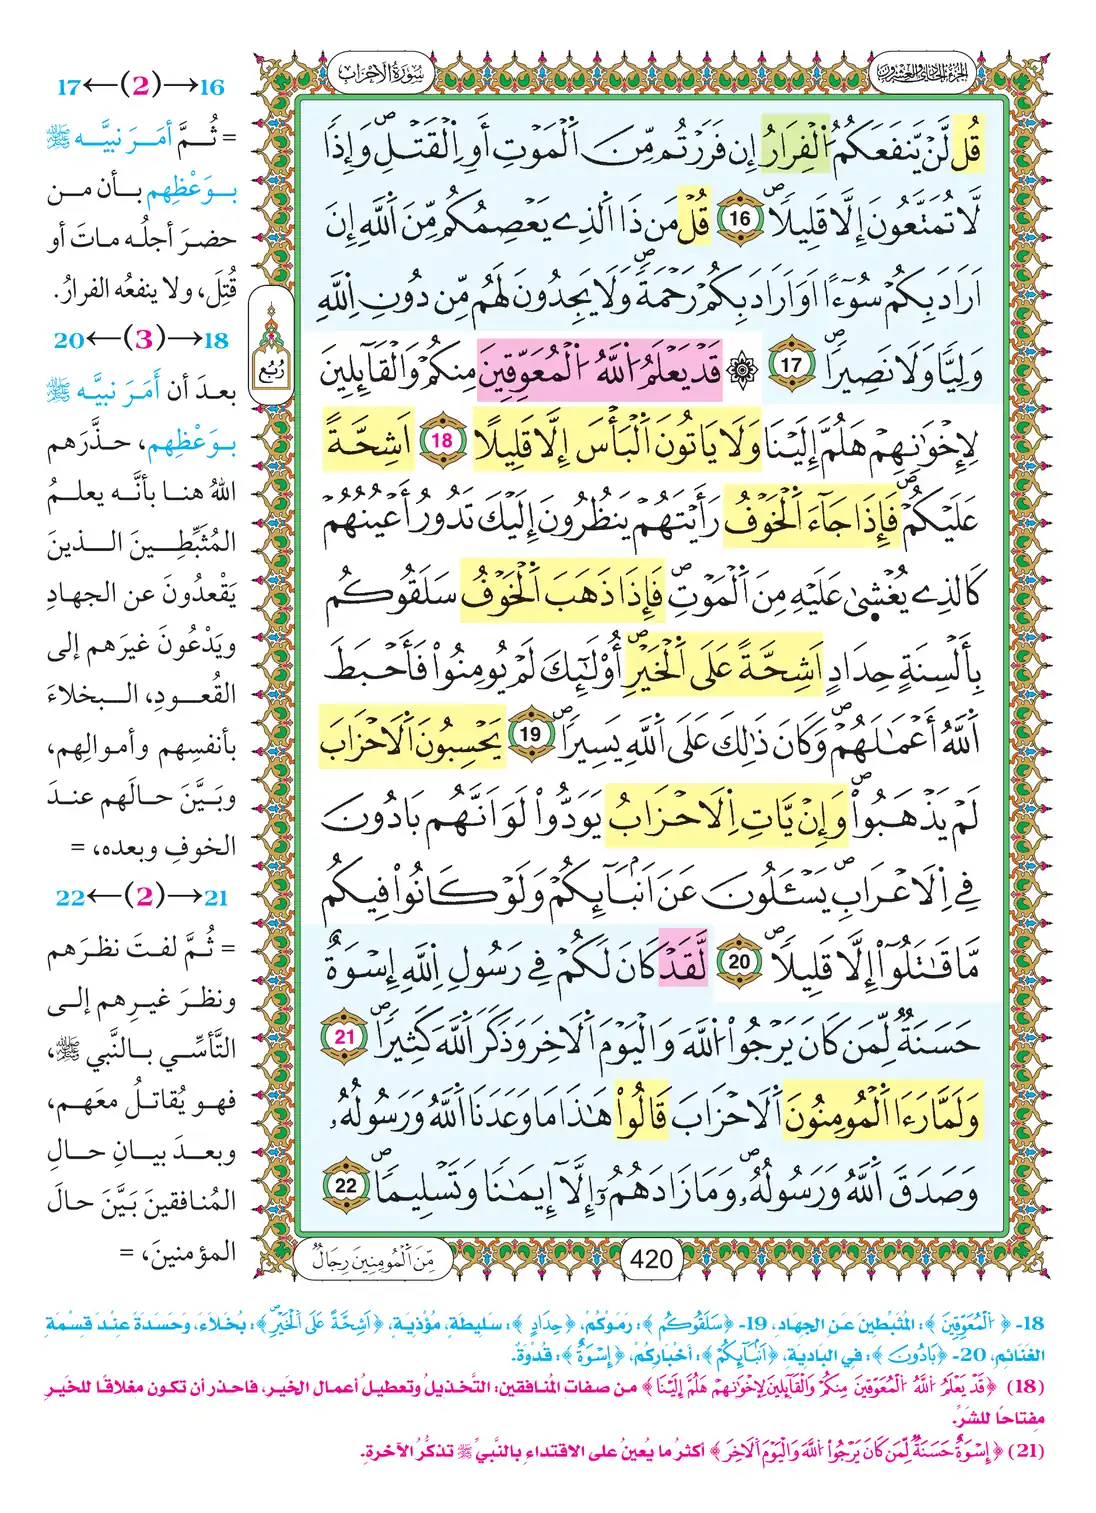 سُورَةُ الأَحْزَابِ
الجزء الحادي والعشرون
قُل لَّنْ يَّنفَعَكُمُ اُ۬لْفِرَارُ إِن فَرَرْتُم مِّنَ اَ۬لْمَوْتِ أَوِ اِ۬لْقَتْلِۖ وَإِذاٗ
لَّا تُمَتَّعُونَ إِلَّا قَلِيلاٗۖ 16 قُلْ مَن ذَا اَ۬لذِے يَعْصِمُكُم مِّنَ اَ۬للَّهِ إِنَ
اَرَادَ بِكُمْ سُوٓءاً اَوَ اَرَادَ بِكُمْ رَحْمَةٗۖ وَلَا يَجِدُونَ لَهُم مِّن دُونِ اِ۬للَّهِ
وَلِيّاٗ وَلَا نَصِيراٗۖ 17 ۞ قَدْ يَعْلَمُ اُ۬للَّهُ اُ۬لْمُعَوِّقِينَ مِنكُمْ وَالْقَآئِلِينَ
لِإِخْوَٰنِهِمْ هَلُمَّ إِلَيْنَا وَلَا يَاتُونَ اَ۬لْبَأْسَ إِلَّا قَلِيلاً 18 اَشِحَّةً
عَلَيْكُمْۖ فَإِذَا جَآءَ اَ۬لْخَوْفُ رَأَيْتَهُمْ يَنظُرُونَ إِلَيْكَ تَدُورُ أَعْيُنُهُمْ
كَالذِے يُغْش۪يٰ عَلَيْهِ مِنَ اَ۬لْمَوْتِۖ فَإِذَا ذَهَبَ اَ۬لْخَوْفُ سَلَقُوكُم
بِأَلْسِنَةٍ حِدَادٍ اَشِحَّةً عَلَي اَ۬لْخَيْرِۖ أُوْلَٰٓئِكَ لَمْ يُومِنُواْ فَأَحْبَطَ
اَ۬للَّهُ أَعْمَٰلَهُمْۖ وَكَانَ ذَٰلِكَ عَلَي اَ۬للَّهِ يَسِيراٗۖ 19 يَحْسِبُونَ اَ۬لَاحْزَابَ
لَمْ يَذْهَبُواْۖ وَإِنْ يَّاتِ اِ۬لَاحْزَابُ يَوَدُّواْ لَوَ اَنَّهُم بَادُونَ
فِے اِ۬لَاعْرَابِ يَسْـَٔلُونَ عَنَ اَنۢبَآئِكُمْۖ وَلَوْ كَانُواْ فِيكُم
مَّا قَٰتَلُوٓاْ إِلَّا قَلِيلاٗۖ 20 لَّقَدْ كَانَ لَكُمْ فِے رَسُولِ اِ۬للَّهِ إِسْوَةٌ
حَسَنَةٞ لِّمَن كَانَ يَرْجُواْ اُ۬للَّهَ وَالْيَوْمَ اَ۬لَاخِرَ وَذَكَرَ اَ۬للَّهَ كَثِيراٗۖ 21
وَلَمَّا رَءَا اَ۬لْمُومِنُونَ اَ۬لَاحْزَابَ قَالُواْ هَٰذَا مَا وَعَدَنَا اَ۬للَّهُ وَرَسُولُهُۥ
وَصَدَقَ اَ۬للَّهُ وَرَسُولُهُۥۖ وَمَا زَادَهُمُۥٓ إِلَّآ إِيمَٰناٗ وَتَسْلِيماٗۖ 22
مِّنَ اَ۬لْمُومِنِينَ رِجَالٞ
420
رُبُع
16→(2)←17
= ثُمَّ أمَرَ نبيَّه ﷺ
بوَعْظِهم بأن من
حضرَ أجلُه ماتَ أو
قُتِلَ، ولا ينفعُه الفرارُ.
18→(3)←20
بعدَ أن أَمَرَ نبيَّه ﷺ
بوَعْظِهم، حذَّرَهم
اللهُ هنا بأنَّه يعلمُ
المُثَبِّطِينَ الذينَ
يَقْعدُونَ عن الجهادِ
ويَدْعُونَ غيرَهم إلى
القُعودِ، البخلاءَ
بأنفسِهم وأموالِهم،
وبَيَّنَ حالَهم عندَ
الخوفِ وبعده، =
21→(2)←22
= ثُمَّ لفتَ نظرَهم
ونظرَ غيرِهم إلى
التَّأسِّي بالنَّبي ﷺ،
فهو يُقاتلُ معَهم،
وبعدَ بيانِ حالِ
المُنافقينَ بَيَّنَ حالَ
المؤمنينَ، =
18- ﴿اُ۬لْمُعَوِّقِينَ﴾: المُثَبِّطِينَ عَنِ الجِهَادِ، 19- ﴿سَلَقُوكُم﴾: رَمَوْكُمْ، ﴿حِدَادٍ﴾: سَلِيطَةٍ، مُؤْذِيَةٍ، ﴿اَشِحَّةً عَلَي اَ۬لْخَيْرِۖ﴾: بُخَلَاءَ، وَحَسَدَةً عِنْدَ قِسْمَةِ
الغَنَائِمِ، 20- ﴿بَادُونَ﴾: في البَادِيَةِ، ﴿اَنۢبَآئِكُمْ﴾: أَخْبَارِكُمْ، ﴿إِسْوَةٌ﴾: قُدْوَةٌ.
(18) ﴿قَدْ يَعْلَمُ اُ۬للَّهُ اُ۬لْمُعَوِّقِينَ مِنكُمْ وَالْقَآئِلِينَ لِإِخْوَٰنِهِمْ هَلُمَّ إِلَيْنَا﴾ من صفات المُنافقين: التَّخذيلُ وتعطيلُ أعمال الخَير، فاحذر أن تكون مغلاقًا للخَيرِ
مِفتاحًا للشَرِّ.
(21) ﴿إِسْوَةٌ حَسَنَةٞ لِّمَن كَانَ يَرْجُواْ اُ۬للَّهَ وَالْيَوْمَ اَ۬لَاخِرَ﴾ أكثرُ ما يُعينُ على الاقتداءِ بالنَّبيِّ ﷺ تذكُّرُ الآخرةِ.